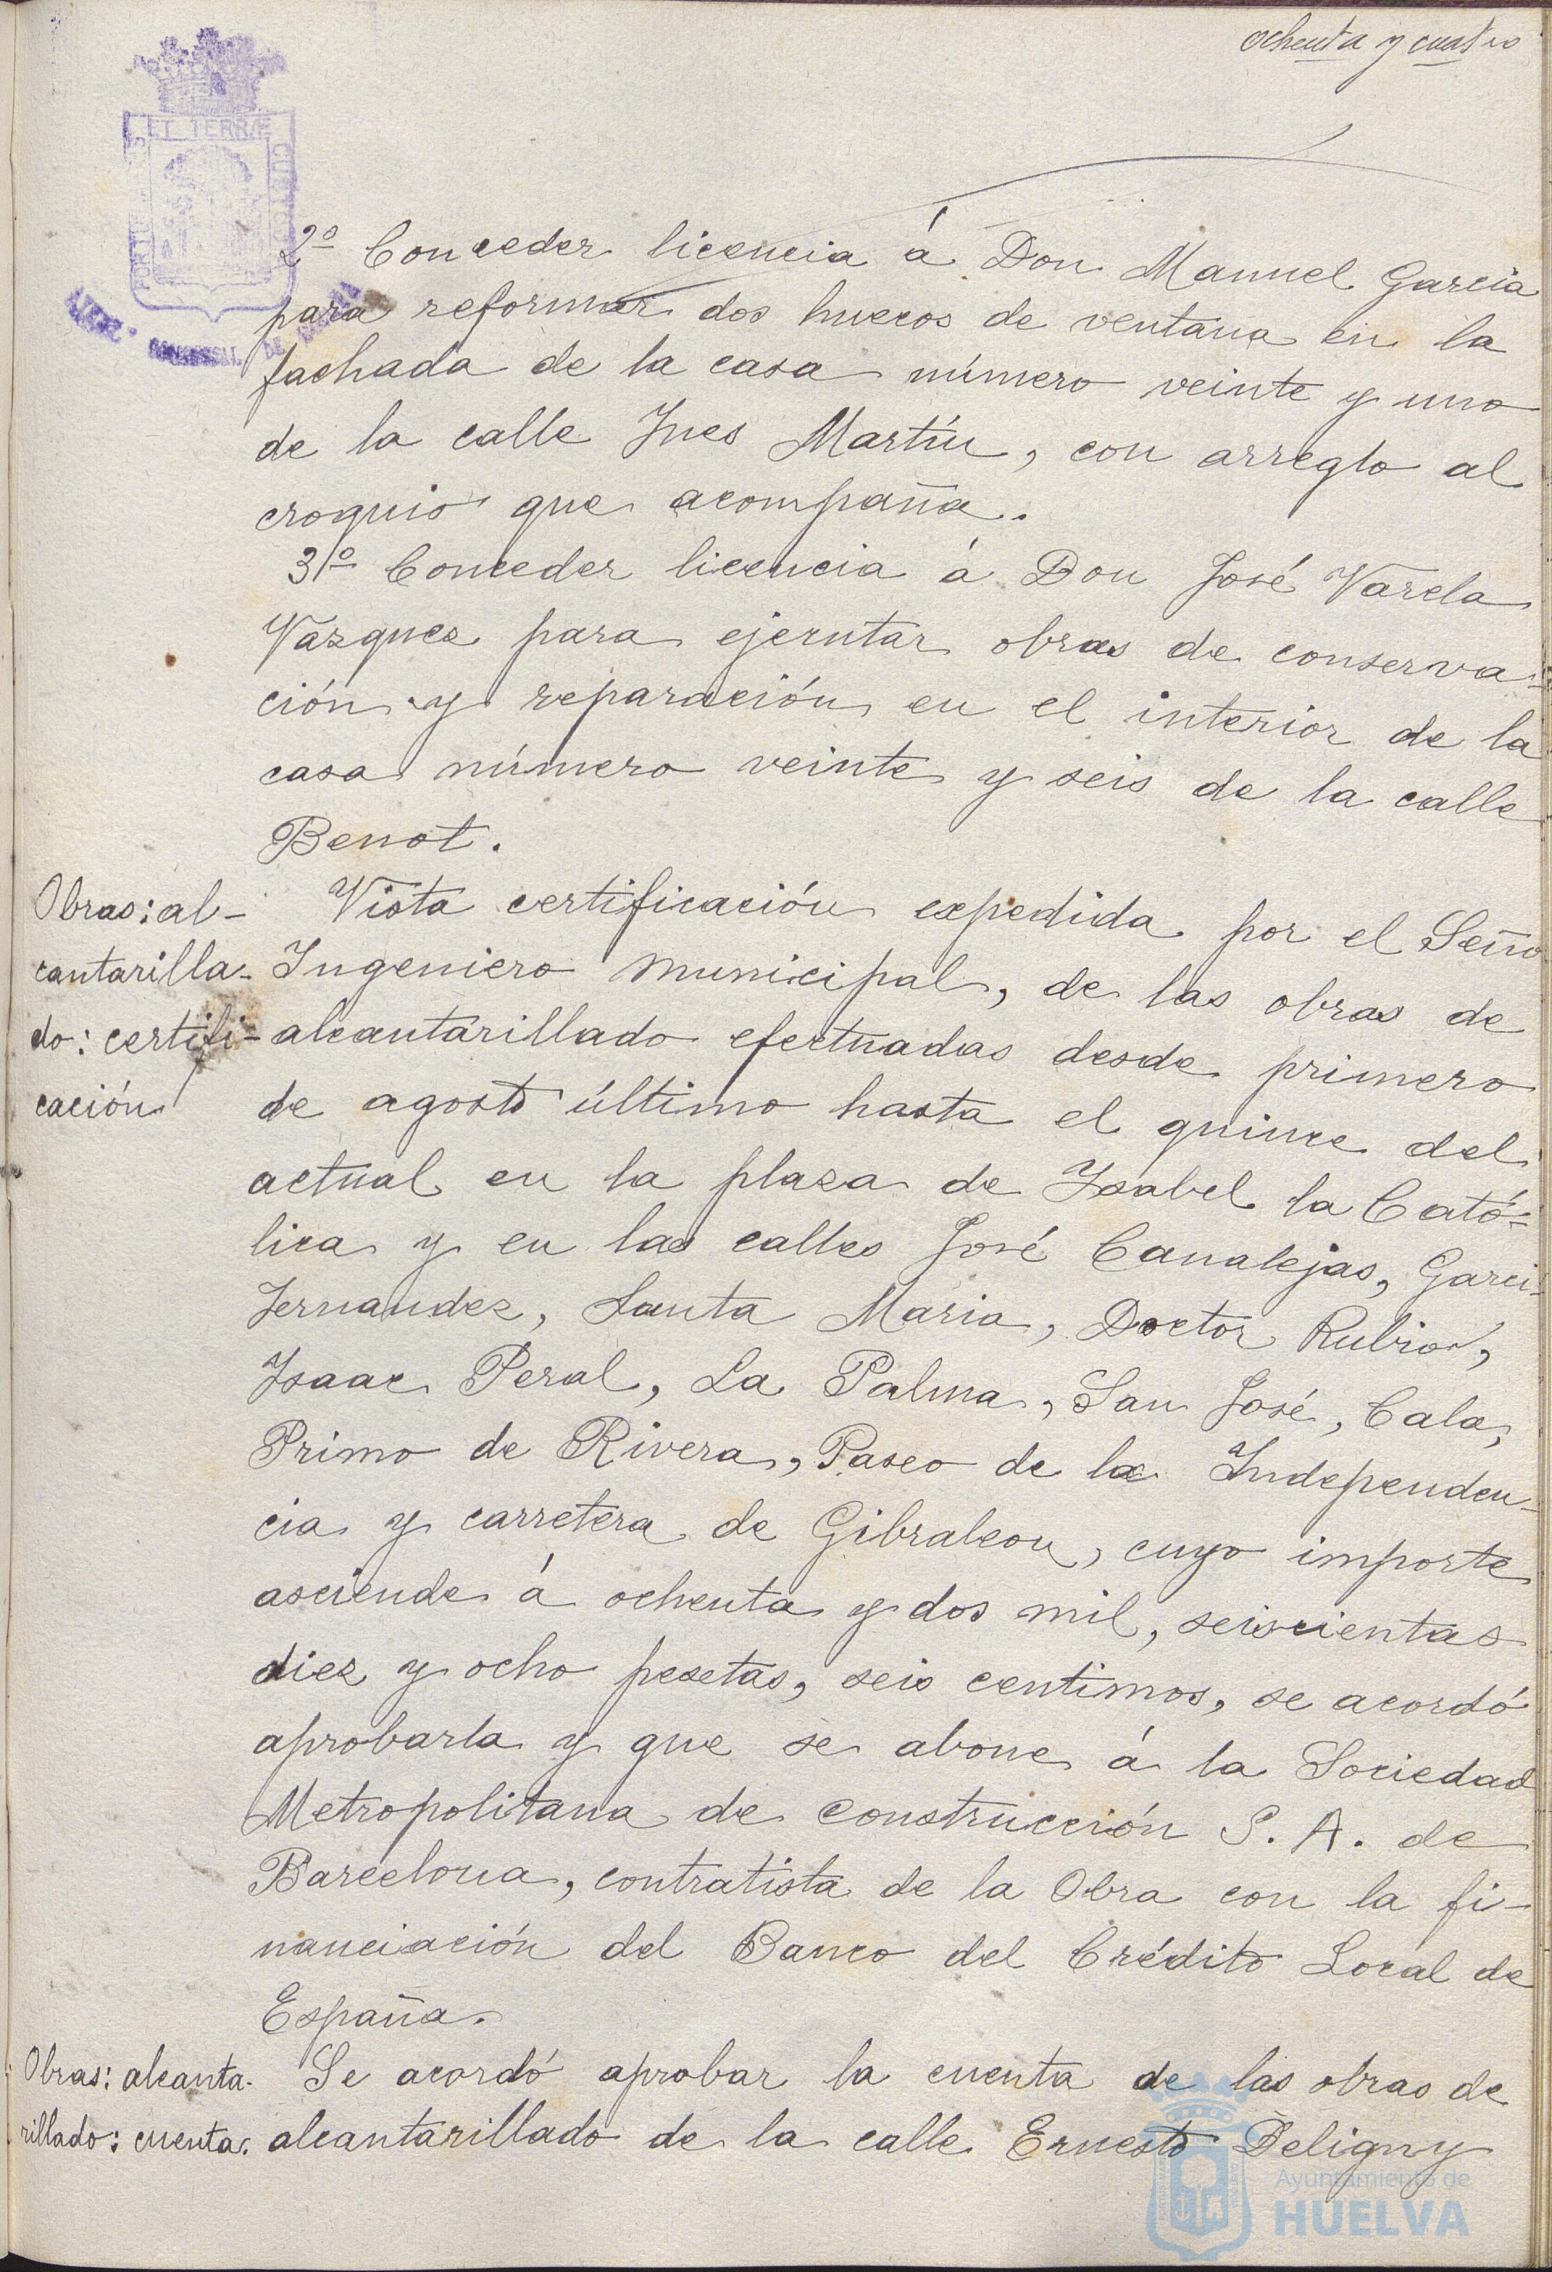 ochenta y cuatro
ET TERRÆ
2º Conceder licencia á Don Manuel Garcia
para reformar dos huecos de ventana en la
fachada de la casa número veinte y uno
de la calle Ines Martín, con arreglo al
croquis que acompaña.
3º Conceder licencia á Don José Varela
Vazquez para ejecutar obras de conserva-
ción y reparación en el interior de la
casa número veinte y seis de la calle
Benot.
Obras: al-
cantarilla-
do: certifi-
cación
Vista certificación expedida por el Seño
Ingeniero municipal, de las obras de
alcantarillado efectuadas desde primero
de agosto último hasta el quince del
actual en la plaza de Isabel la Cató-
lica y en las calles José Canalejas, Garci-
Fernandez, Santa Maria, Doctor Rubio,
Isaac Peral, La Palma, San José, Cala,
Primo de Rivera, Paseo de la Independen-
cia y carretera de Gibraleon, cuyo importe
asciende á ochenta y dos mil, seiscientas
diez y ocho pesetas, seis centimos, se acordó
aprobarla y que se abone á la Sociedad
Metropolitana de Construcción S. A. de
Barcelona, contratista de la Obra con la fi-
nanciación del Banco del Crédito Local de
España.
Obras: alcanta-
rillado: cuenta.
Se acordó aprobar la cuenta de las obras de
alcantarillado de la calle Ernesto Deligny
Ayuntamiento de
HUELVA